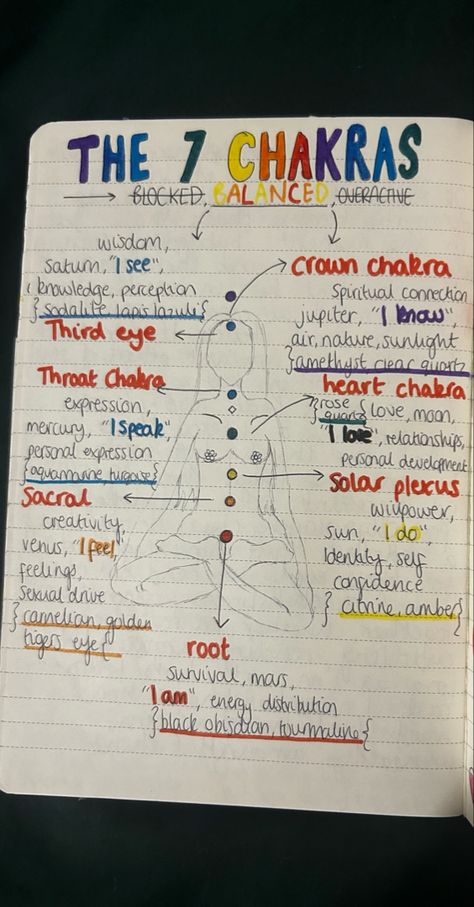 THE 7 CHAKRAS
BLOCKED, BALANCED, OVERACTIVE
wisdom,
saturn, "I see",
knowledge, perception
{sodalite, lapis lazuli}
Third eye
crown chakra
Spiritual connection
jupiter, "I know",
air, nature, sunlight
{amethyst, clear quartz
Throat Chakra
expression,
mercury, "I speak",
personal expression
{aquamarine turquoise}
heart chakra
}rose quartz{ love, moon,
"I love", relationships,
personal development
Sacral
creativity,
venus, "I feel,
feelings,
sexual drive
} carnelian, golden
tigers eye{
Solar plexus
willpower,
sun, "I do",
Identity, self
confidence
} citrine, amber{
root
survival, mars,
"I am", energy distribution
}black obisdian, tourmaline{